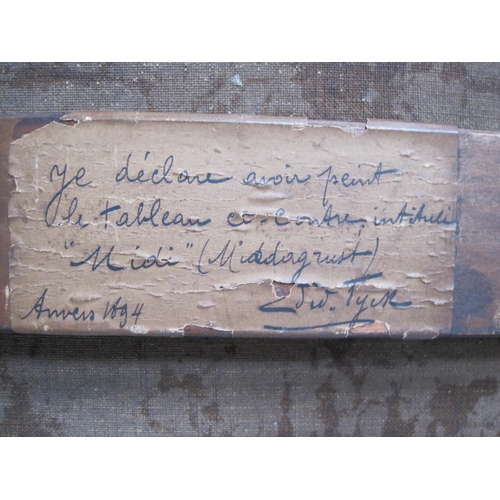 Je déclare avoir peint
le tableau ci-contre, intitulé
"Midi" (Middagrust)
Anvers 1894 Edw. Tyck